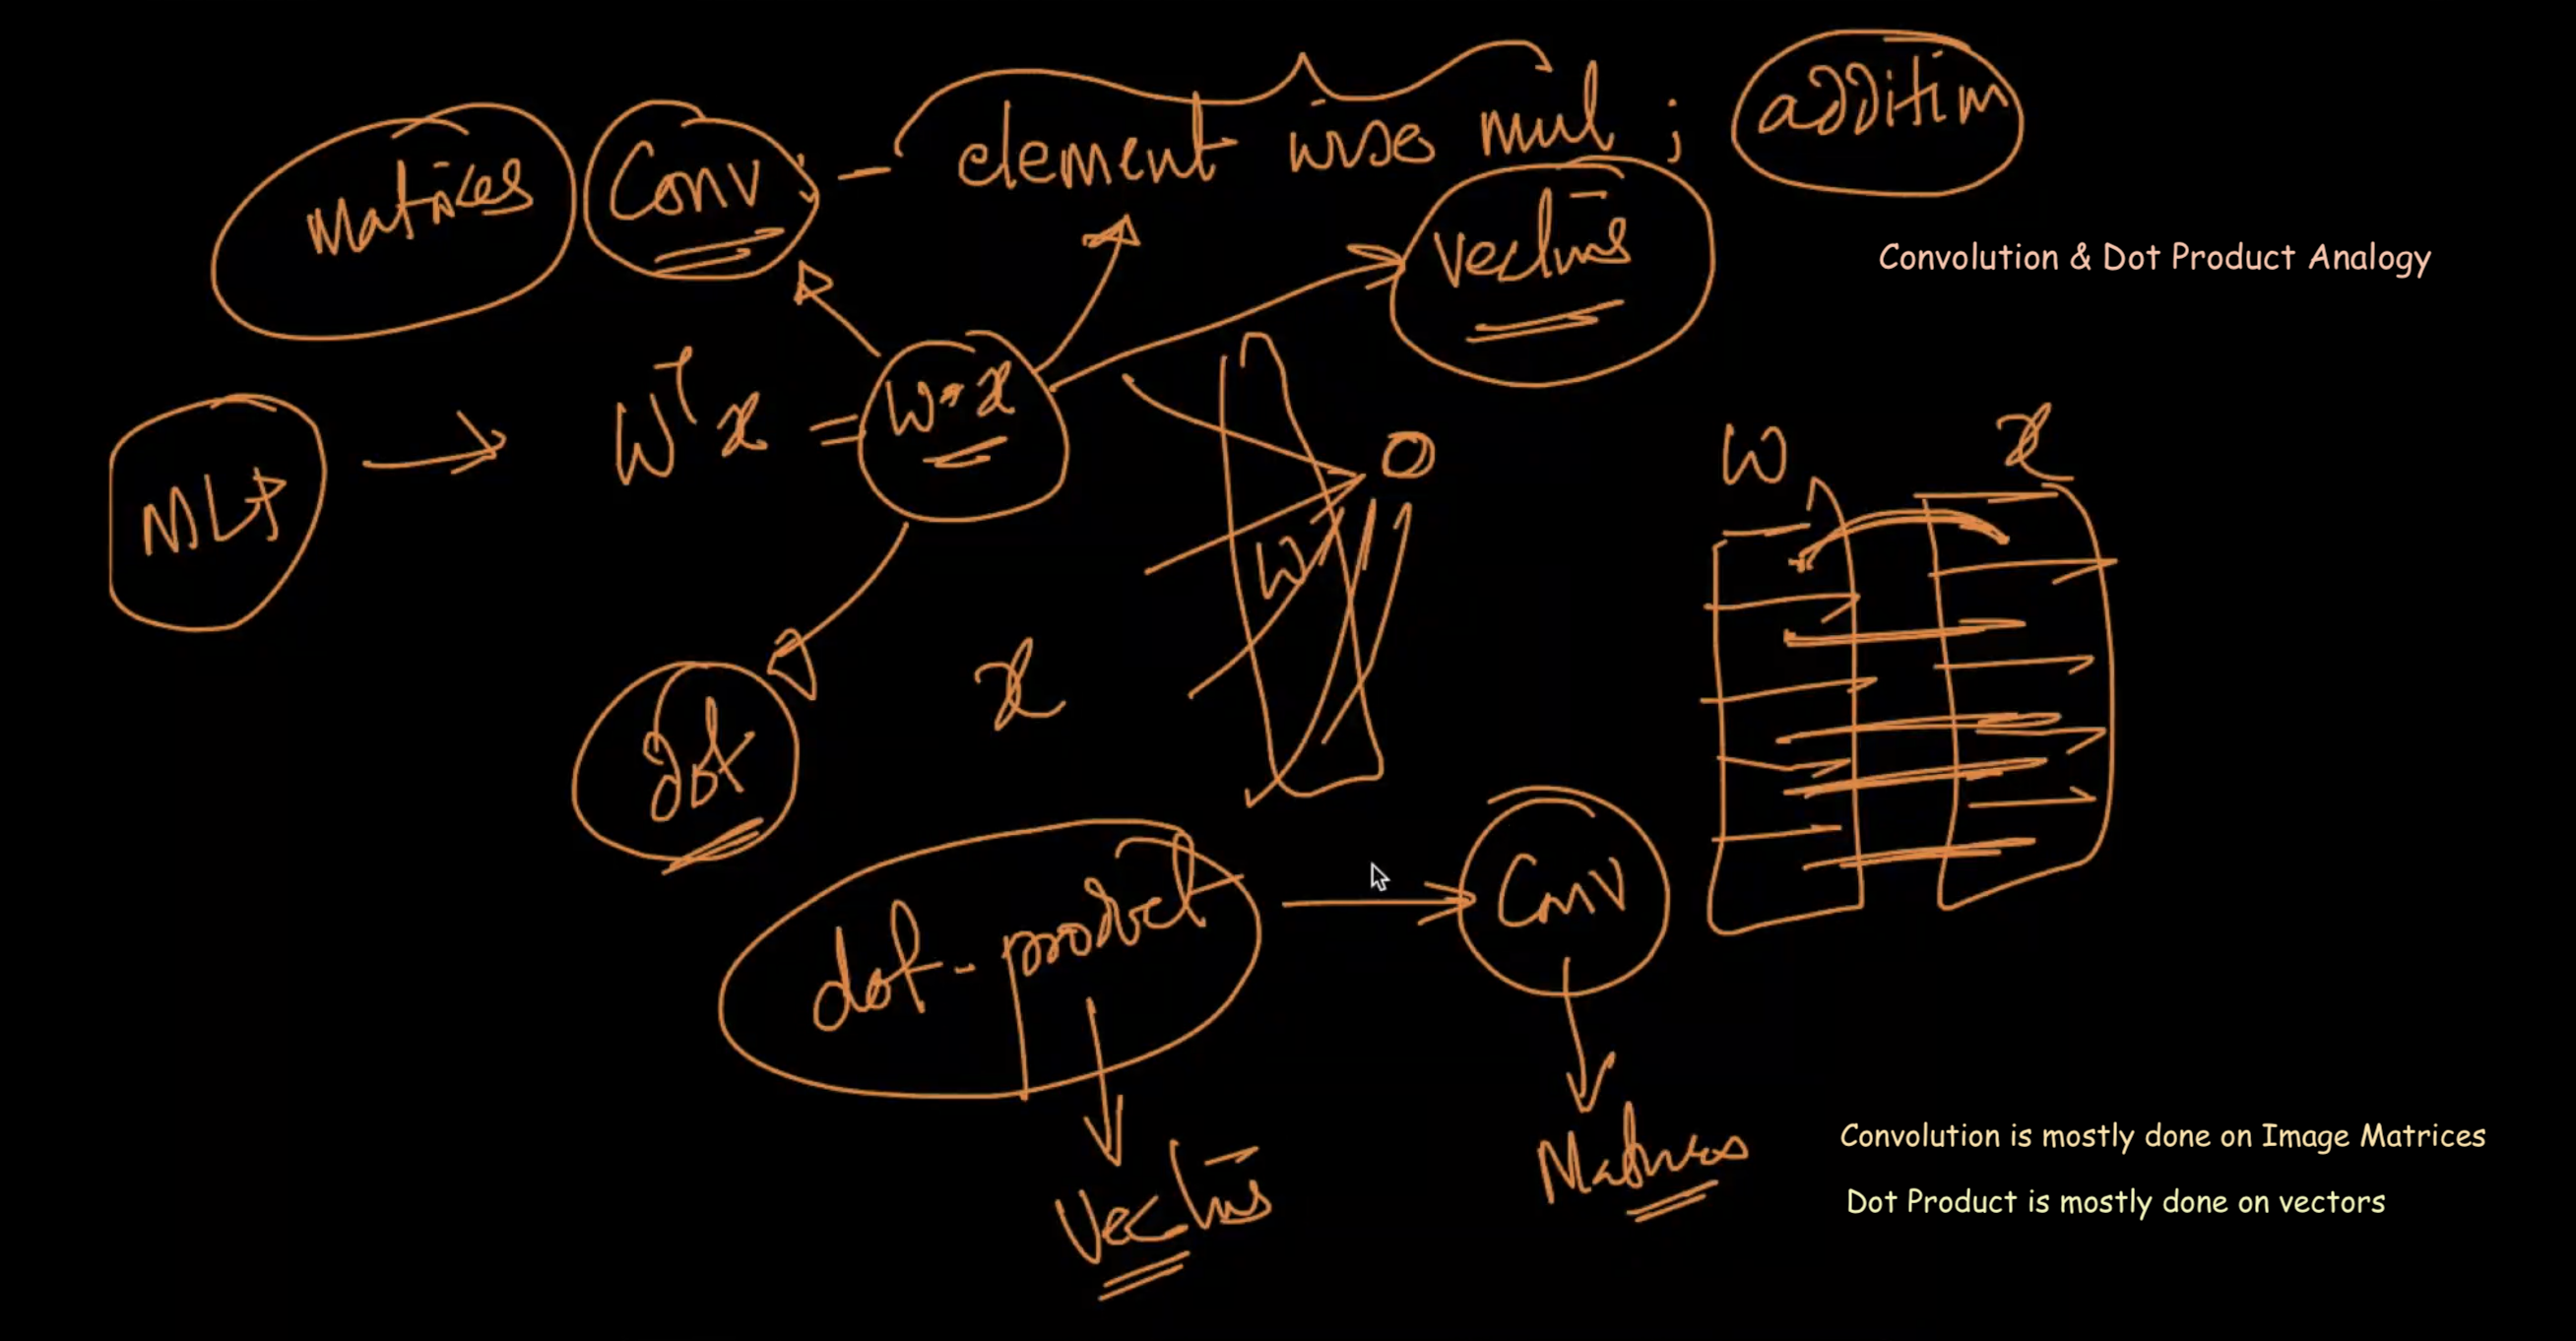 Matrices Conv :- element wise mul ; addition
vectors
Convolution & Dot Product Analogy
MLP → WᵀX = W·X
O
W
W X
X
dot
dot-product → Conv
Vectors
Matrices
Convolution is mostly done on Image Matrices
Dot Product is mostly done on vectors